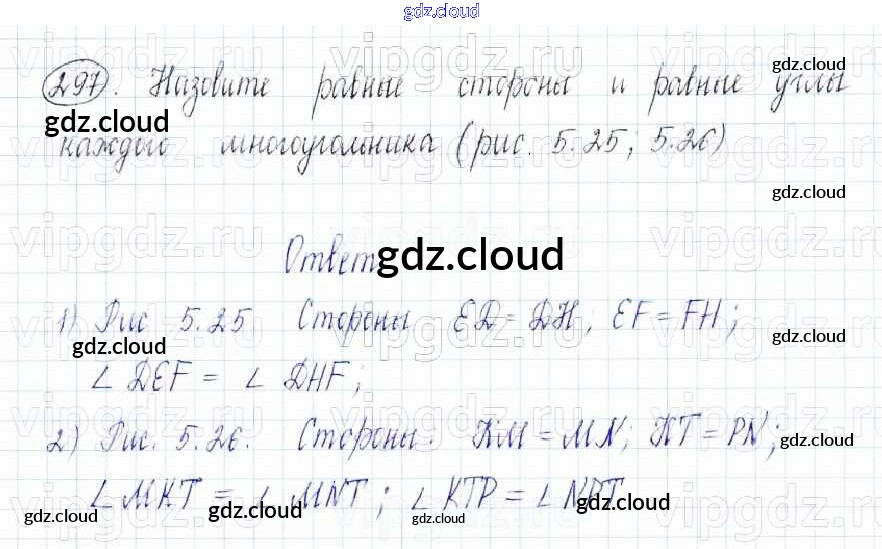 gdz.cloud
297. Назовите равные стороны и равные углы
каждого многоугольника (рис. 5.25; 5.26)
Ответ
1) Рис 5.25. Стороны ED = DH; EF = FH;
∠ DEF = ∠ DHF;
2) Рис. 5.26. Стороны: KM = MN; KT = PN;
∠ MKT = ∠ MNT; ∠ KTP = ∠ NPT
gdz.cloud
gdz.cloud
gdz.cloud
gdz.cloud
gdz.cloud
gdz.cloud
gdz.cloud
gdz.cloud
gdz.cloud
gdz.cloud
gdz.cloud